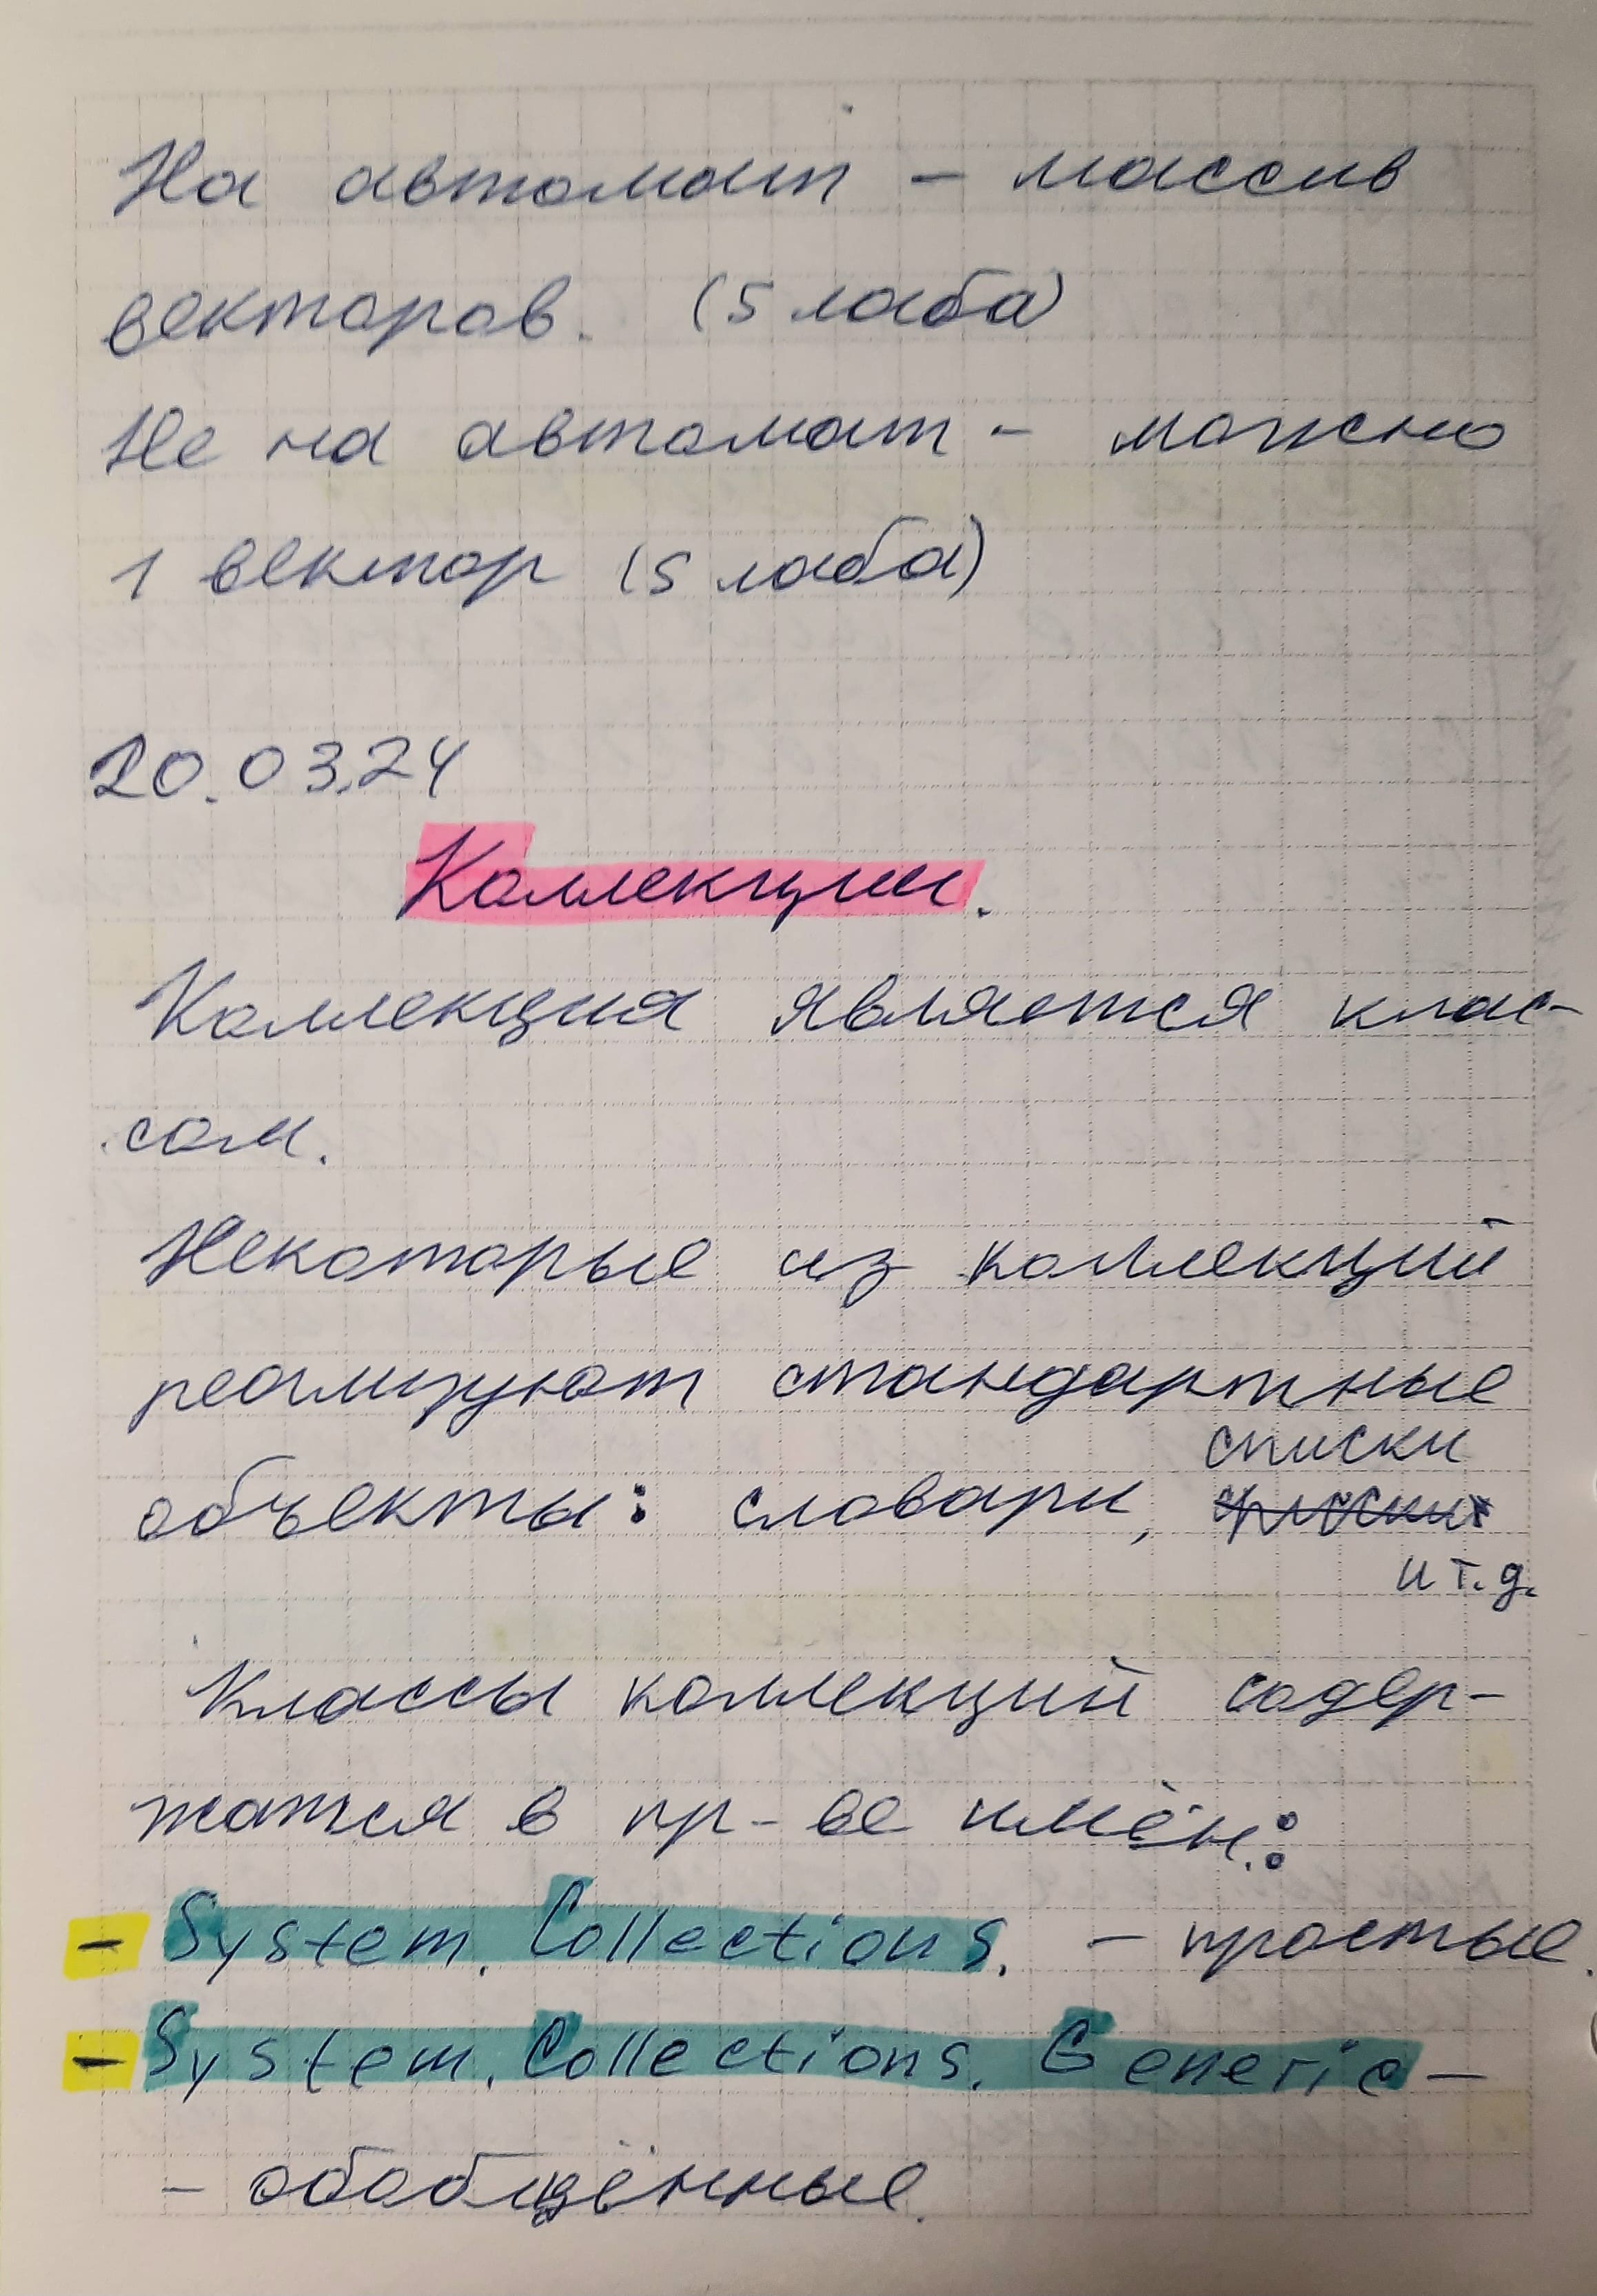 На автомат - массив
векторов. (5 лаба)
Не на автомат - можно
1 вектор (5 лаба)
20.03.24
Коллекции.
Коллекция является клас-
сом.
Некоторые из коллекций
реализуют стандартные
списки
объекты: словари,
и т.д.
Классы коллекций содер-
жатся в пр-ве имён:
- System.Collections. - простые.
- System.Collections.Generic -
- обобщённые.